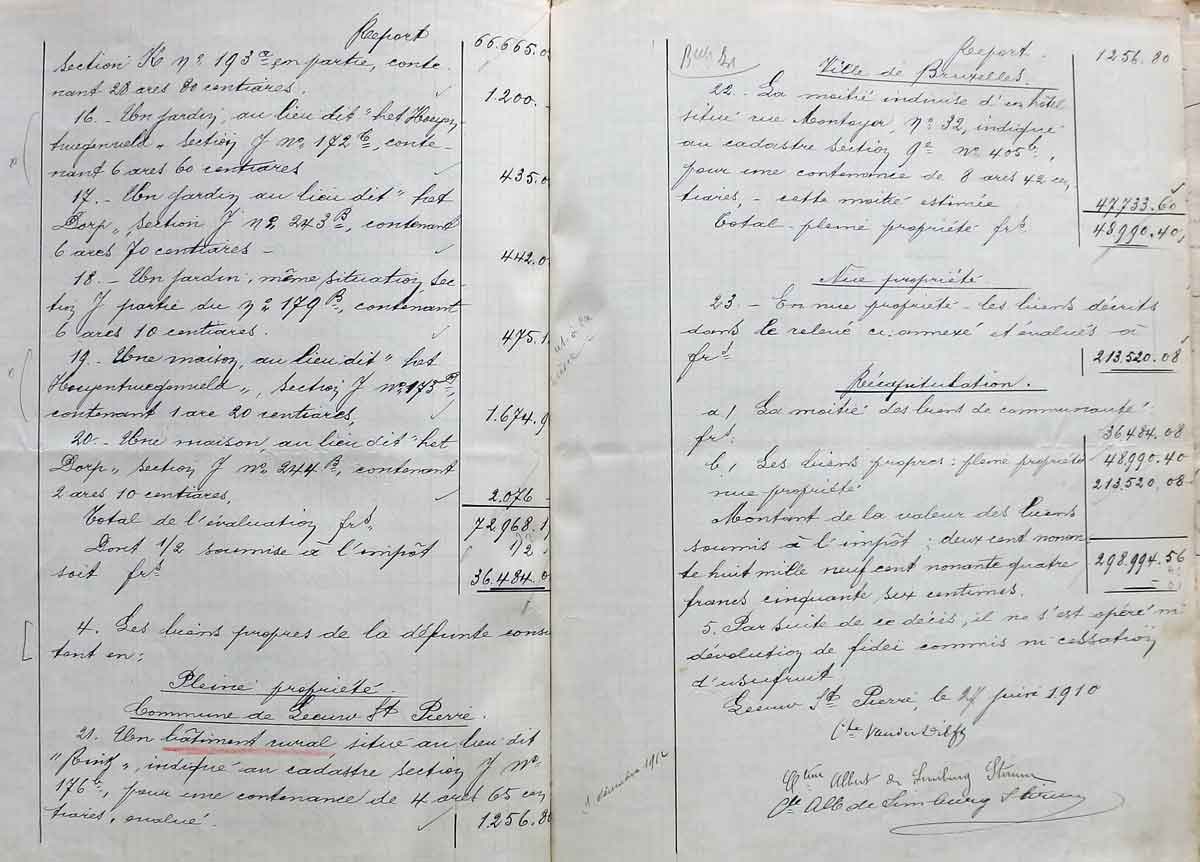 Report 66.665.0
Section K nº 193ª en partie, conte-
nant 20 ares 80 centiares. 1.200.-
16.- Un jardin, au lieu dit "het
section J nº 172, conte-
nant 6 ares 60 centiares 435.0
17.- Un jardin au lieu dit "het
Dorp", section J nº 243 B, contenant
6 ares 70 centiares - 442.0
18.- Un jardin, même situation, sec-
tion J partie du nº 179 B, contenant
6 ares 10 centiares. 475.1
19. Une maison, au lieu dit "het
section J nº 173,
contenant 1 are 20 centiares, 1.674.9
20.- Une maison, au lieu dit "het
Dorp", section J nº 244 B, contenant
2 ares 10 centiares, 2.076 -
Total de l'évaluation frs. 72.968.1
Dont 1/2 soumise à l'impôt 1/2
soit frs. 36.484.0
4. Les biens propres de la défunte consis
tant en:
Pleine propriété.
Commune de Leeuw St Pierre.
21. Un bâtiment rural, situé au lieu dit
"Rink", indiqué au cadastre section J Nº
176, pour une contenance de 4 ares 65 cen
tiares, évalué. 1256.80
Report. 1256.80
Ville de Bruxelles.
22.- La moitié indivise d'un hôtel
situé rue Montoyer, nº 32, indiqué
au cadastre section 9e nº 405,
pour une contenance de 8 ares 42 cen
tiares,- cette moitié estimée 47733.60
Total pleine propriété frs. 48.990.40
Nue propriété.
23.- En nue propriété les biens décrits
dans le relevé ci-annexé et évalués à
frs. 213.520.08
Récapitulation.
a/ La moitié des biens de communauté
frs. 36484.08
b, Les biens propres: pleine propriété 48990.40
nue propriété 213.520.08
Montant de la valeur des biens
soumis à l'impôt: deux cent nonan
te huit mille neuf cent nonante quatre 298.994.56
francs cinquante six centimes.
5. Par suite de ce décès, il ne s'est opéré ni
dévolution de fidei commis ni cessation
d'usufruit
Leeuw St Pierre, le juin 1910
Albert de Limburg Stirum
Cte Alb de Limburg Stirum
1 décembre 1912